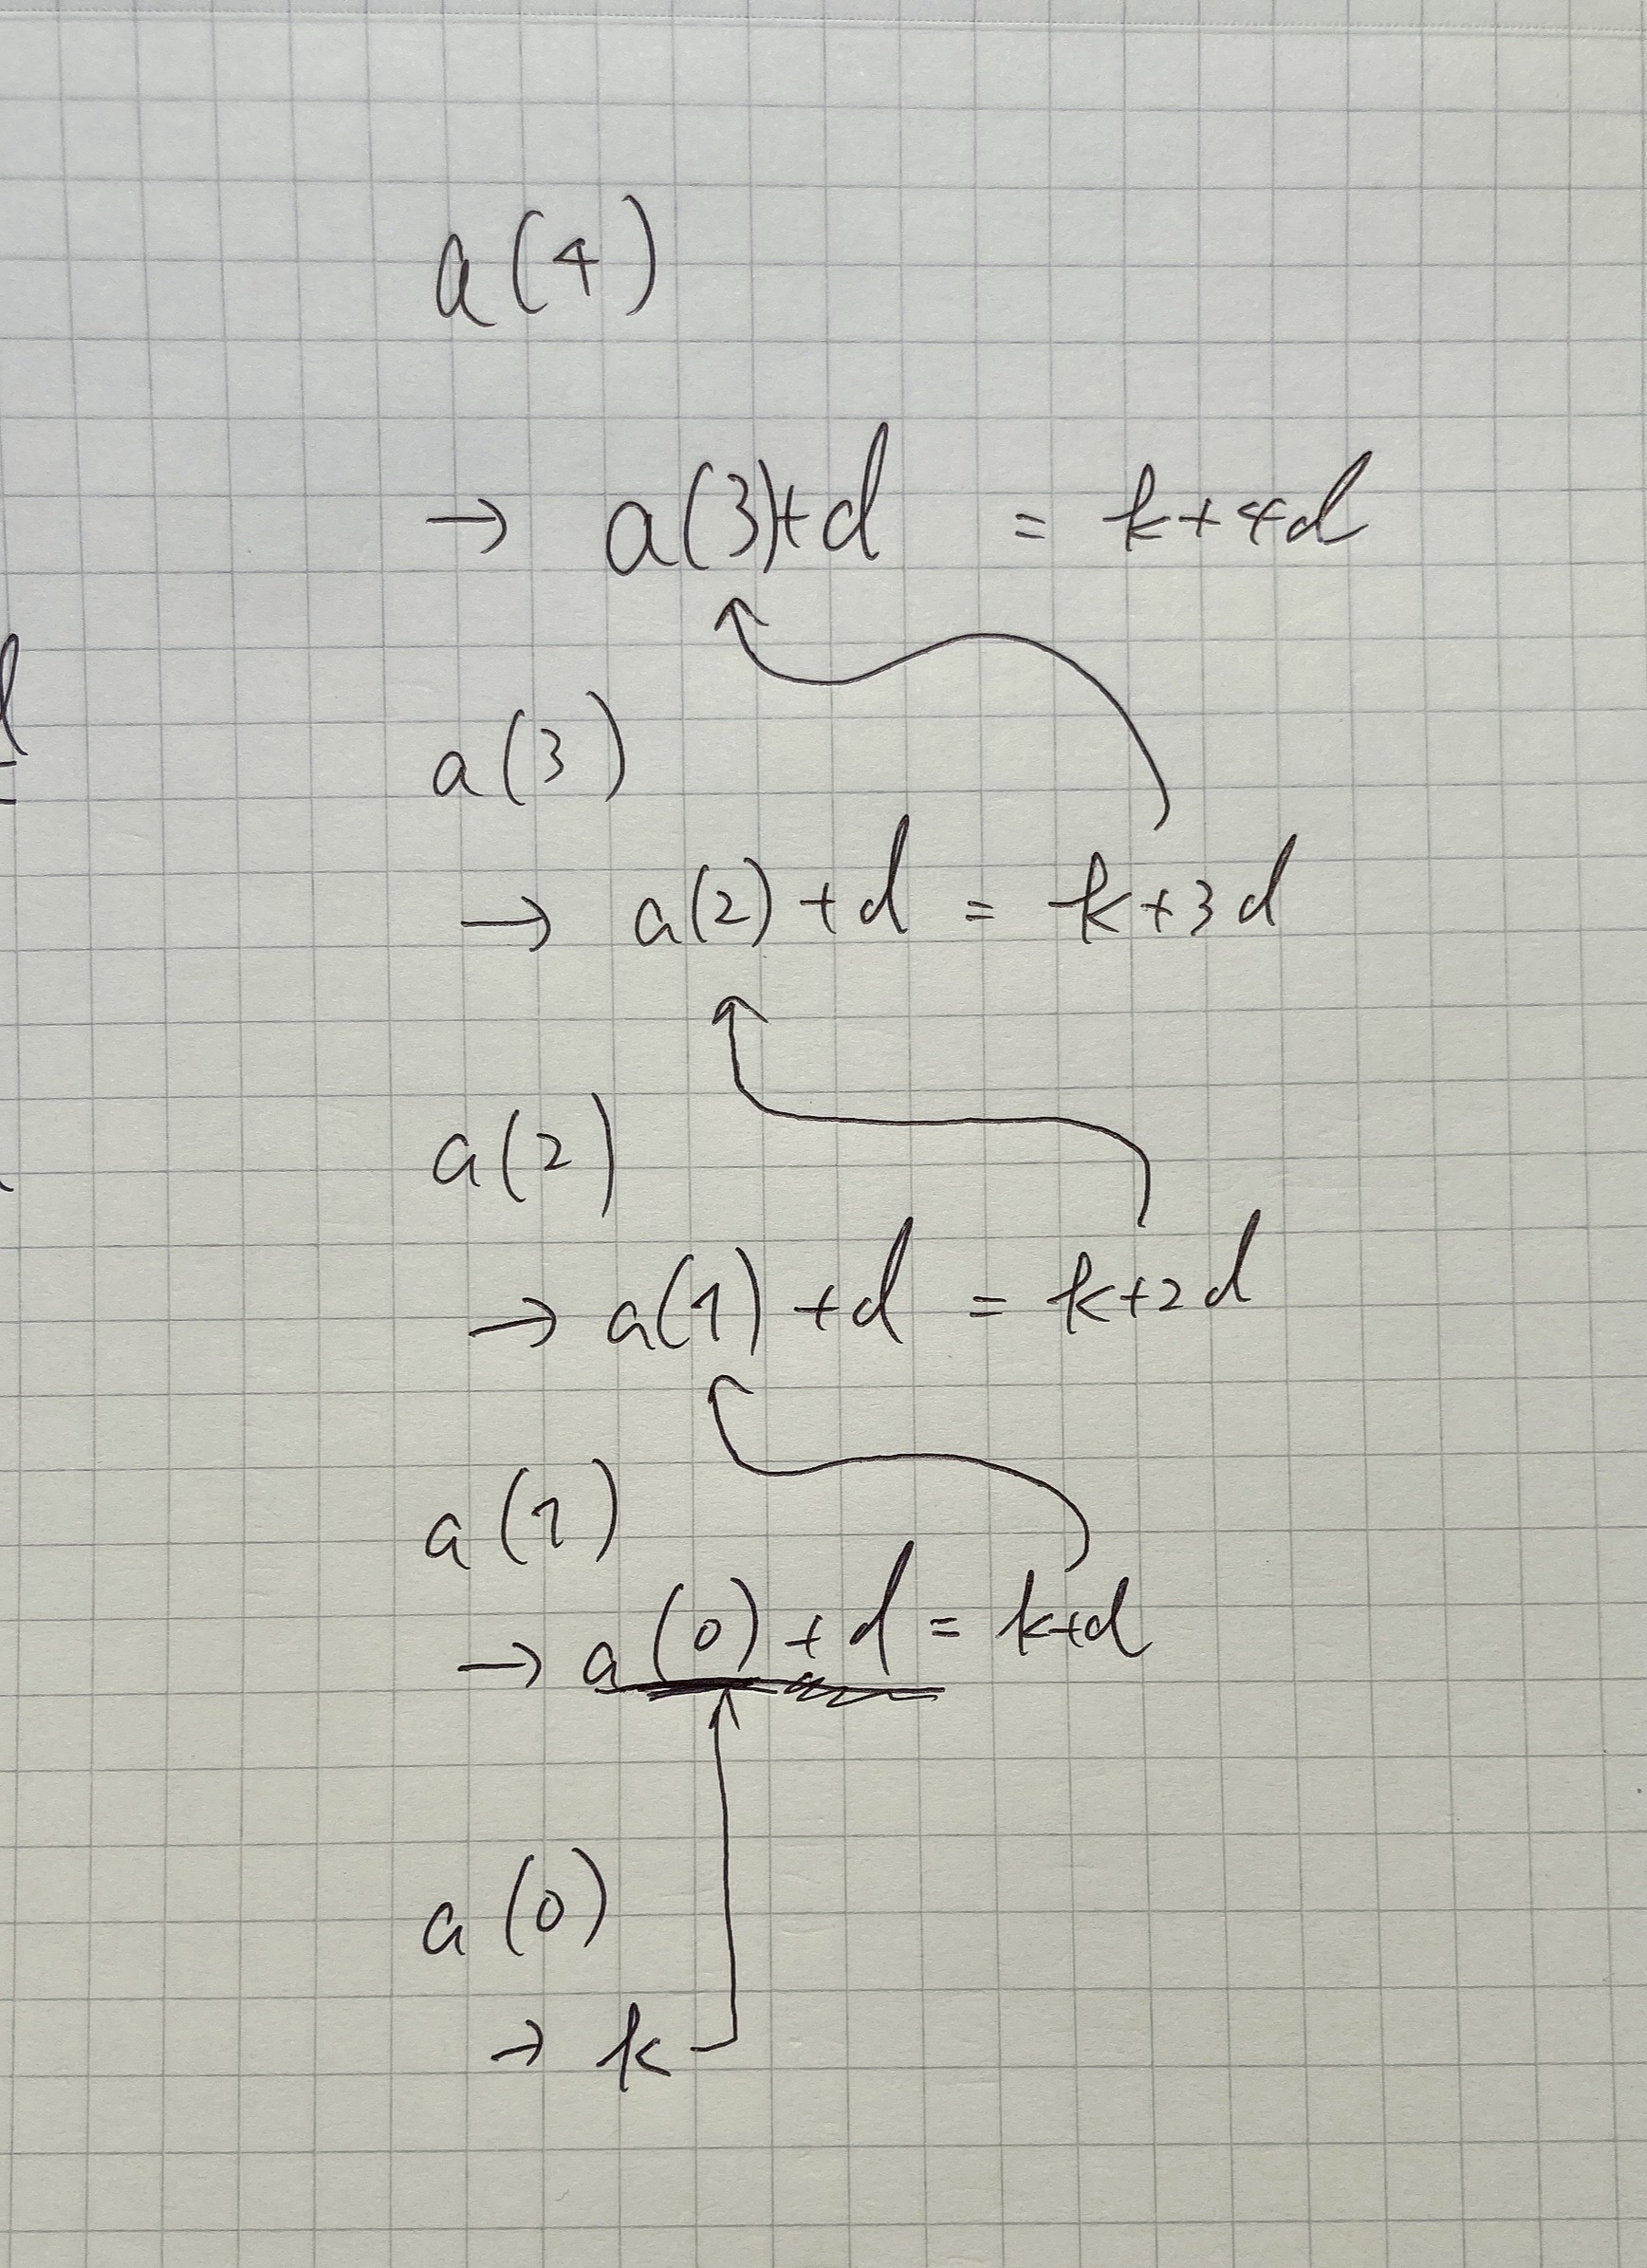 a(4)
→ a(3)+d = k+4d
a(3)
→ a(2)+d = k+3d
a(2)
→ a(1)+d = k+2d
a(1)
→ a(0)+d = k+d
a(0)
→ k